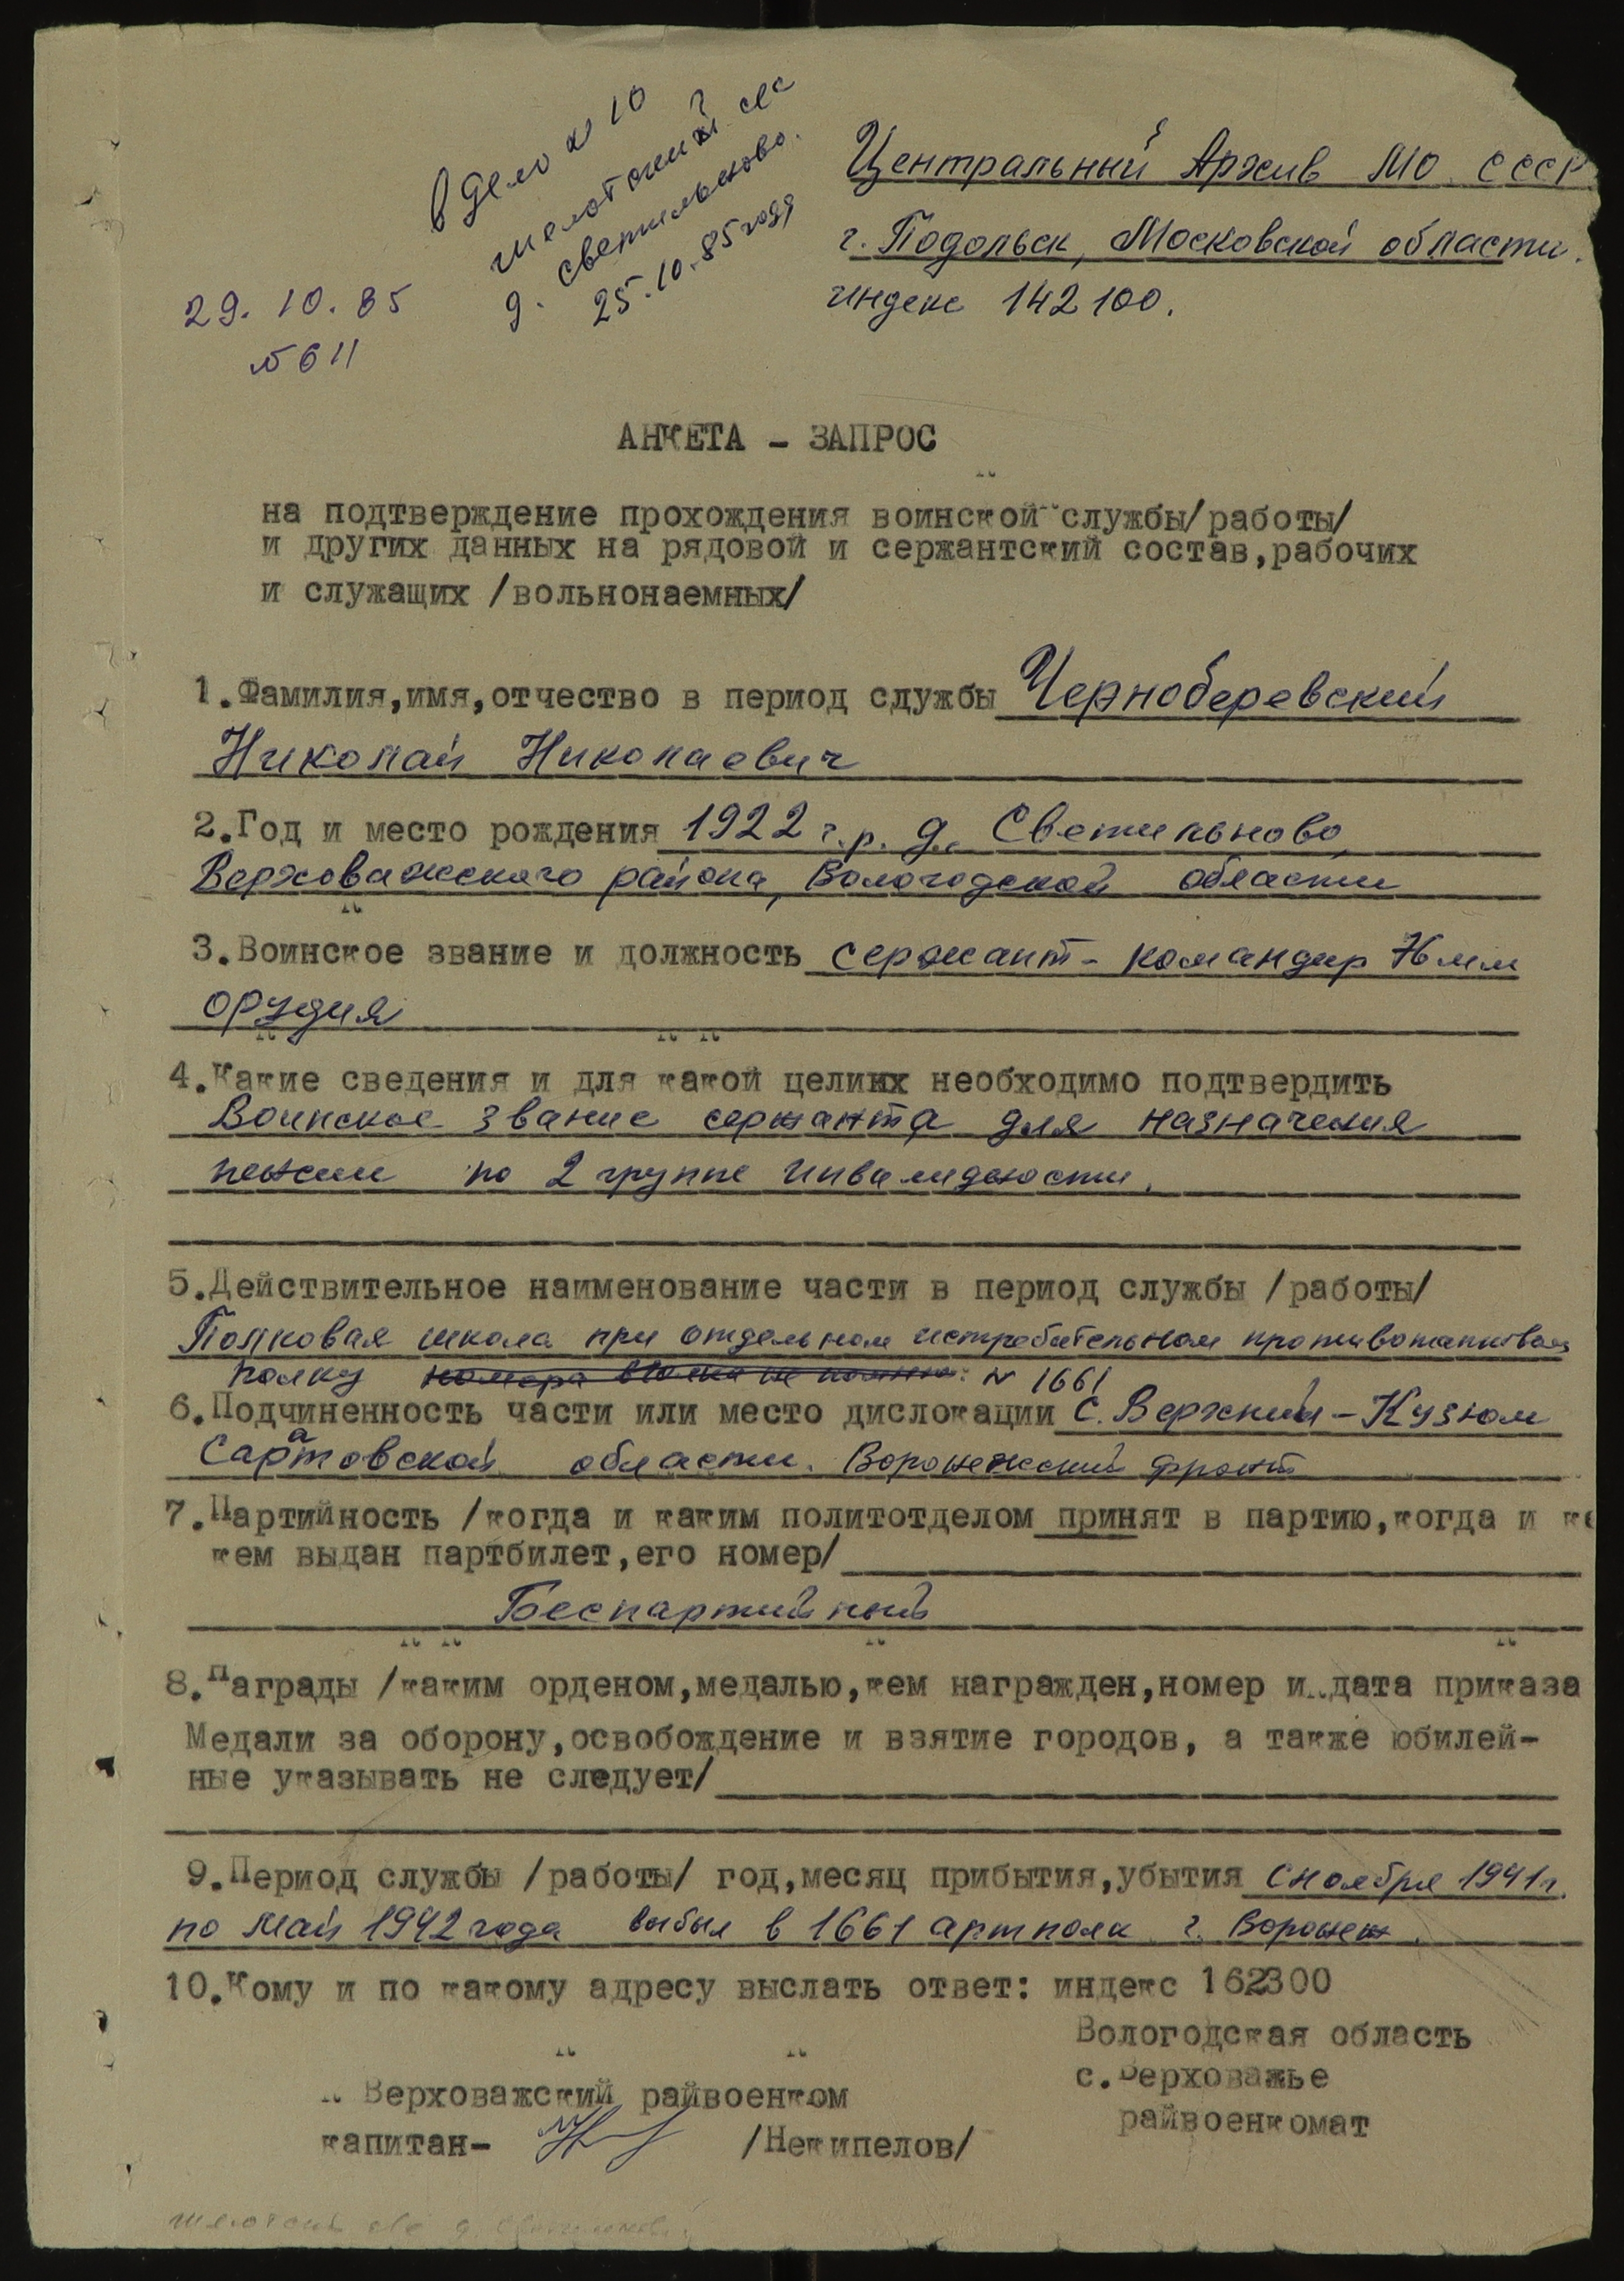 в дело № 10
шелотский с/с
д. Светильново.
25.10.85 года
29. 10. 85
№ 611
Центральный Архив МО СССР
г. Подольск, Московской области.
индекс 142100.
АНКЕТА - ЗАПРОС
на подтверждение прохождения воинской службы/работы/
и других данных на рядовой и сержантский состав,рабочих
и служащих /вольнонаемных/
1.Фамилия,имя,отчество в период службы Чернобер​евский
Николай Николаевич
2.Год и место рождения 1922 г.р. д. Светильново,
Верховажского района, Вологодской области
3.Воинское звание и должность сержант - командир 76 мм
орудия
4.Какие сведения и для какой целиих необходимо подтвердить
Воинское звание сержанта для назначения
пенсии по 2 группе инвалидности.
5.Действительное наименование части в период службы /работы/
Полковая школа при отдельном истребительном противотанковом
полку № 1661
6.Подчиненность части или место дислокации с. Верхний-Кузюм
Саратовской области. Воронежский фронт
7.Партийность /когда и каким политотделом принят в партию,когда и ке
кем выдан партбилет,его номер/
Беспартийный
8.Награды /каким орденом,медалью,кем награжден,номер и дата приказа
Медали за оборону,освобождение и взятие городов, а также юбилей-
ные указывать не следует/
9.Период службы /работы/ год,месяц прибытия,убытия с ноября 1941г.
по май 1942 года выбыл в 1661 артполк г. Воронеж.
10.Кому и по какому адресу выслать ответ: индекс 162300
Вологодская область
с.Верховажье
райвоенкомат
Верховажский райвоенком
капитан- /Некипелов/